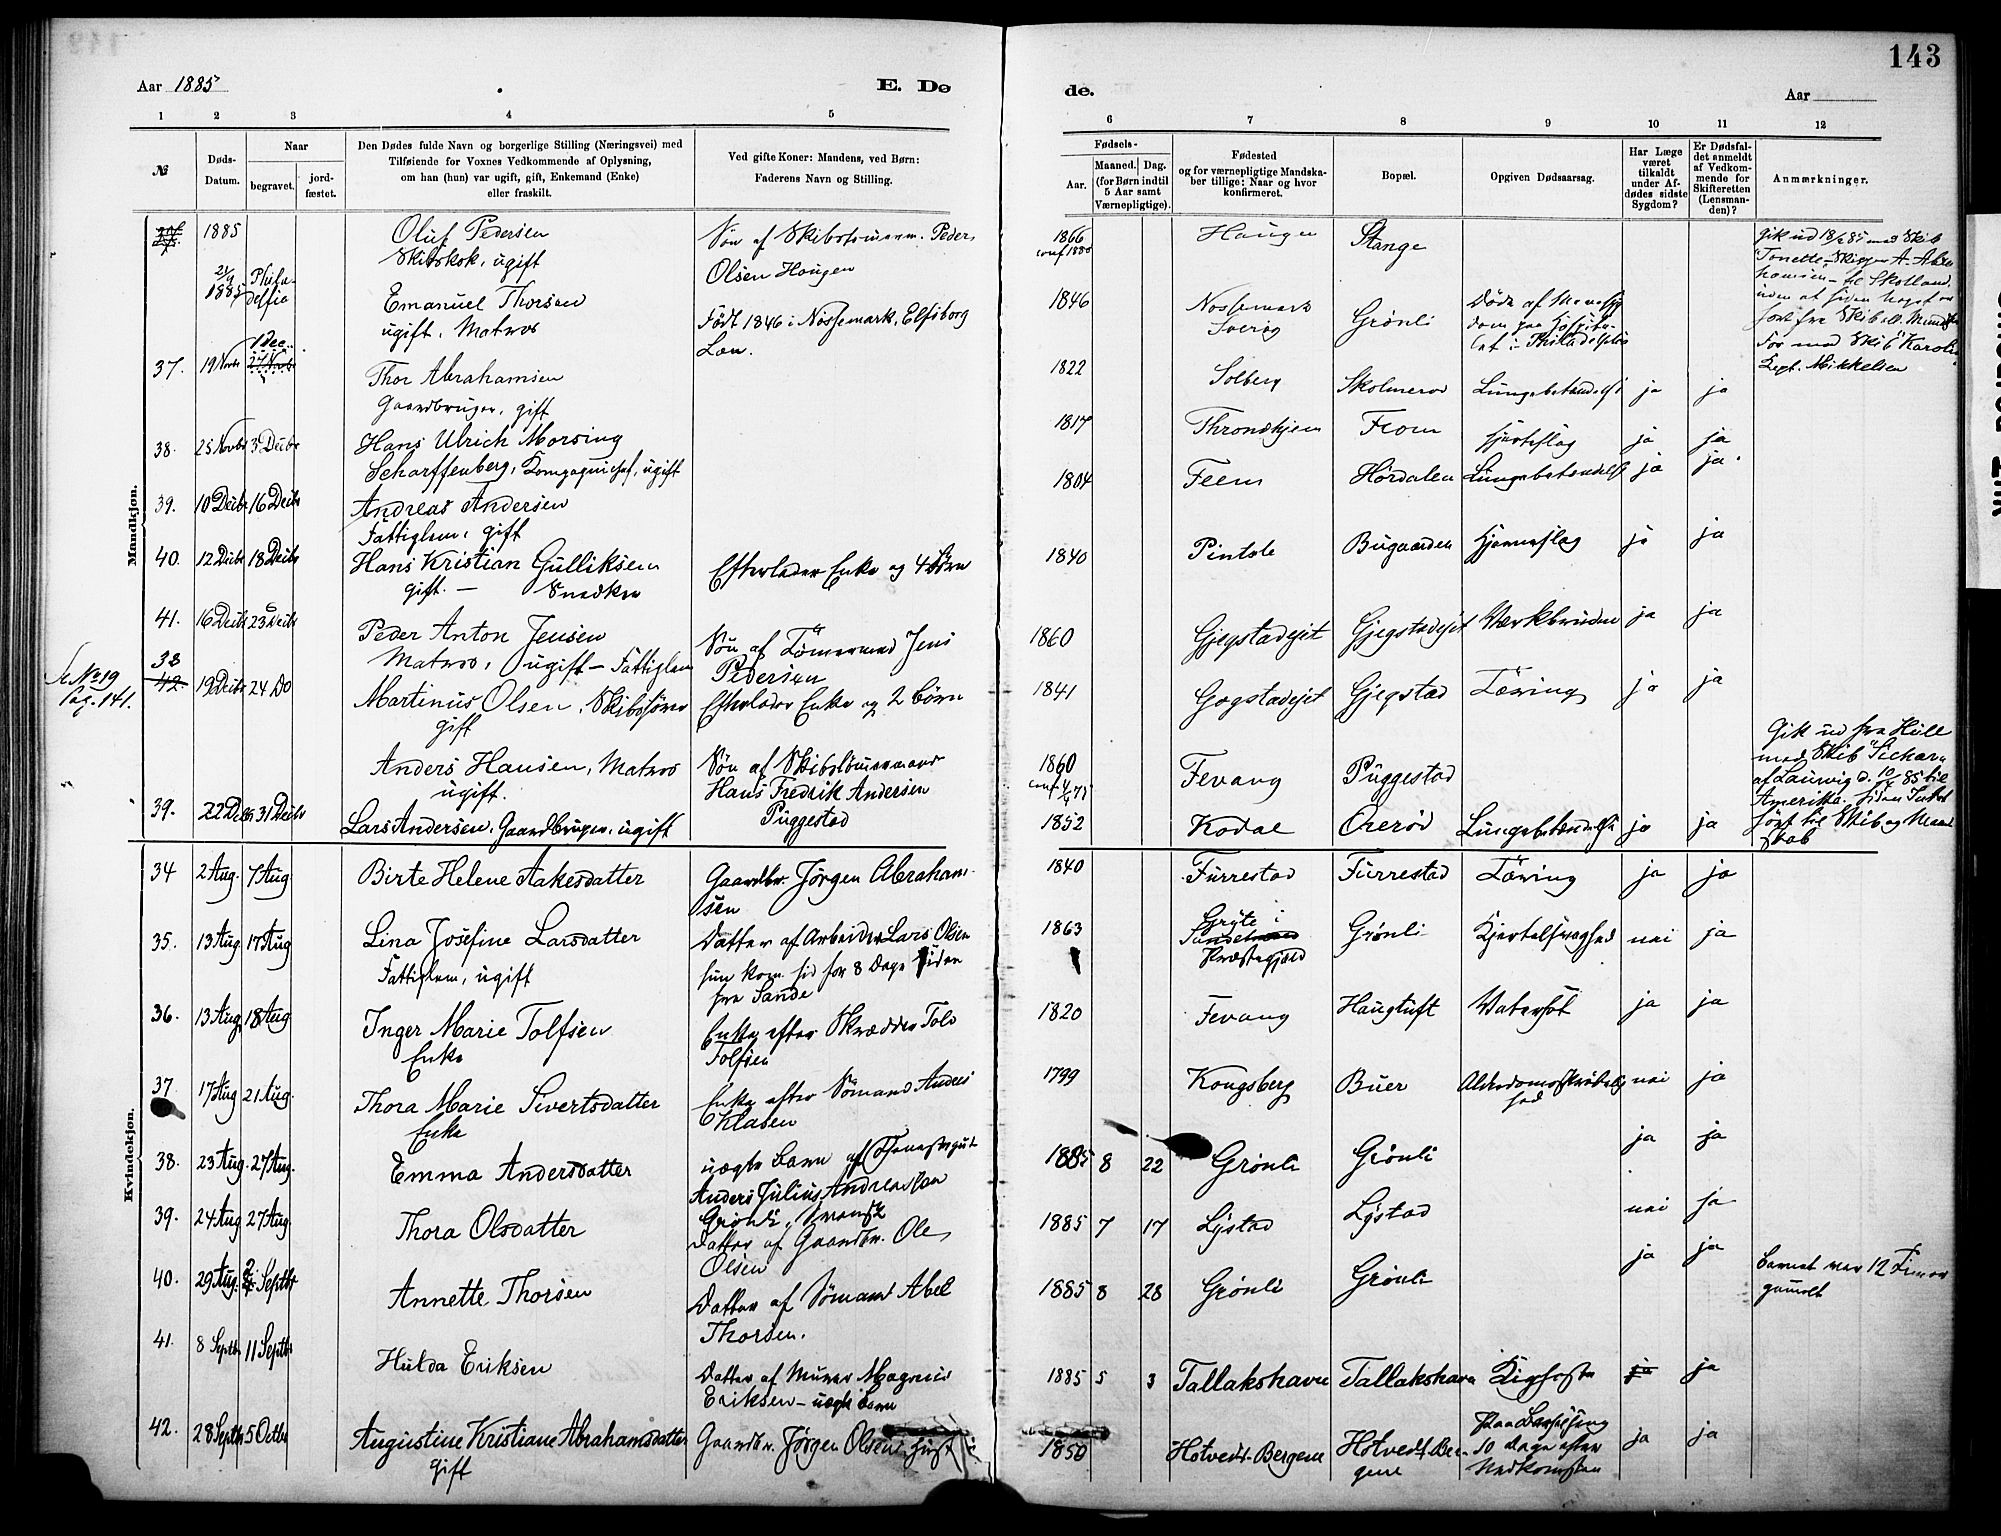 143
Aar 1885
E. Dø
de.
Aar
1 2 3 4 5
6 7 8 9 10 11 12
№
Døds-
Datum.
Naar
begravet.
jord-
fæstet.
Den Dødes fulde Navn og borgerlige Stilling (Næringsvei) med
Tilføiende for Voxnes Vedkommende af Oplysning,
om han (hun) var ugift, gift, Enkemand (Enke)
eller fraskilt.
Ved gifte Koner: Mandens, ved Børn:
Faderens Navn og Stilling.
Fødsels-
Aar.
Maaned. Dag.
(for Børn indtil
5 Aar samt
Værnepligtige).
Fødested
og for værnepligtige Mandska-
ber tillige: Naar og hvor
konfirmeret.
Bopæl.
Opgiven Dødsaarsag.
Har Læge
været
tilkaldt
under Af-
dødes sidste
Sygdom?
Er Dødsfal-
det anmeldt
af Vedkom-
mende for
Skifteretten
(Lensman-
den)?
Anmærkninger.
Mandkjøn.
1885 Oluf Pedersen Søn af Skibstømmerm. Peder
Skibskok, ugift Olsen Haugen
1866 Haugen Stange
conf 1880
Gik ud 18/2 85 med Skib
"Tonette" Skipper A. Abra
hamsen
21/9 1885 Phila-
delfia
Emanuel Thorsen Født 1846 i Nössemark, Elfsborg
ugift, Matros Län.
1846 Nössemark Grönli Døde af
Sverig
1 Dec.
37. 19 Novbr Thor Abrahamsen
Gaardbruger, gift
1822 Solberg Skolmerød Lungebetændelse ja ja
Kapt. Mikkelsen
38. 25 Novbr 3 Decbr Hans Ulrich Morsing
Scharffenberg, Kompagnichef, ugift
1817 Throndhjem From Hjerteslag ja ja
39. 10 Decbr 16 Decbr Andreas Andersen
Fattiglem, gift
1804 Feen Hørdalen Lungebetændelse ja ja
40. 12 Decbr 18 Decbr Hans Kristian Gulliksen Efterlader Enke og 4 Børn
gift. — Snedker
1840 Pintsle Bugaarden Hjerneslag ja ja
41. 16 Decbr 23 Decbr Peder Anton Jensen Søn af Tømermd Jens
Matros, ugift — Fattiglem Pedersen
1860 Gjegstadejet Gjegstadejet Værkbruden ja ja
Se No 19
Pag. 141.
38
42. 19 Decbr 24 Do Martinus Olsen, Skibsfører Efterlader Enke og 2 Børn
gift
1841 Gogstadejet Gjegstad Tæring ja ja
Anders Hansen, Matros Søn af Skibstømmermand
ugift. Hans Fredrik Andersen
Puggestad
1860 Fevang Puggestad
Gik ud fra Hull
med Skib
af Laurvig d. 10/ 85 til
Amerikka. siden Intet
hørt til Skib og Mand
skab
39. 22 Decbr 31 Decbr Lars Andersen, Gaardbruger, ugift
1852 Kodal Ørerød Lungebetændelse ja ja
Kvindekjøn.
34 2 Aug. 7 Aug Birte Helene Aakesdatter Gaardbr. Jörgen Abraham-
sen
1840 Furrestad Furrestad Tæring ja ja
35. 13 Aug 17 Aug Lina Josefine Larsdatter Datter af Arbeider Lars Olsen
Fattiglem, ugift hun kom hid for 8 Dage siden
fra Sande
1863 Gryte i Grönli Kjertelsvaghed nei ja
Præstegjæld
36. 13 Aug 18 Aug Inger Marie Tolfsen Enke efter Skrædder Tolv
Enke Tolfsen
1820 Fevang Haugtuft Vatersot ja ja
37 17 Aug 21 Aug. Thora Marie Sivertsdatter Enke efter Sömand Andres
Enke Klasen
1799 Kongsberg Buer Alderdomsskröbelig nei ja
hed
38. 23 Aug. 27 Aug. Emma Andersdatter uægte Barn af Tjenestegut
Anders Julius Andreassen
Grönli, Svensk
1885 8 22 Grönli Grönli ja ja
39. 24 Aug 27 Aug. Thora Olsdatter Datter af Gaardbr. Ole
Olsen
1885 7 17 Lystad Lystad nei ja
40. 29 Aug. 2 Septbr Annette Thorsen Datter af Sömand Abel
Thorsen.
1885 8 28 Grönli Grönli ja ja Barnet var 12 Timer
gammelt
41. 8 Septbr 11 Septbr Hulda Eriksen Datter af Murer Magnus
Eriksen — uægte Barn
1885 5 3 Tallakshavn Tallakshavn Kighoste ja ja
42. 28 Septbr 5 Octbr Augustine Kristiane Abrahamsdatter Gaardbr. Jörgen Olsens
gift
1850 Hotvedt-Bergene Hotvedt-Ber- Paa Barselseng ja ja
gene 10 Dage efter
Nedkomsten